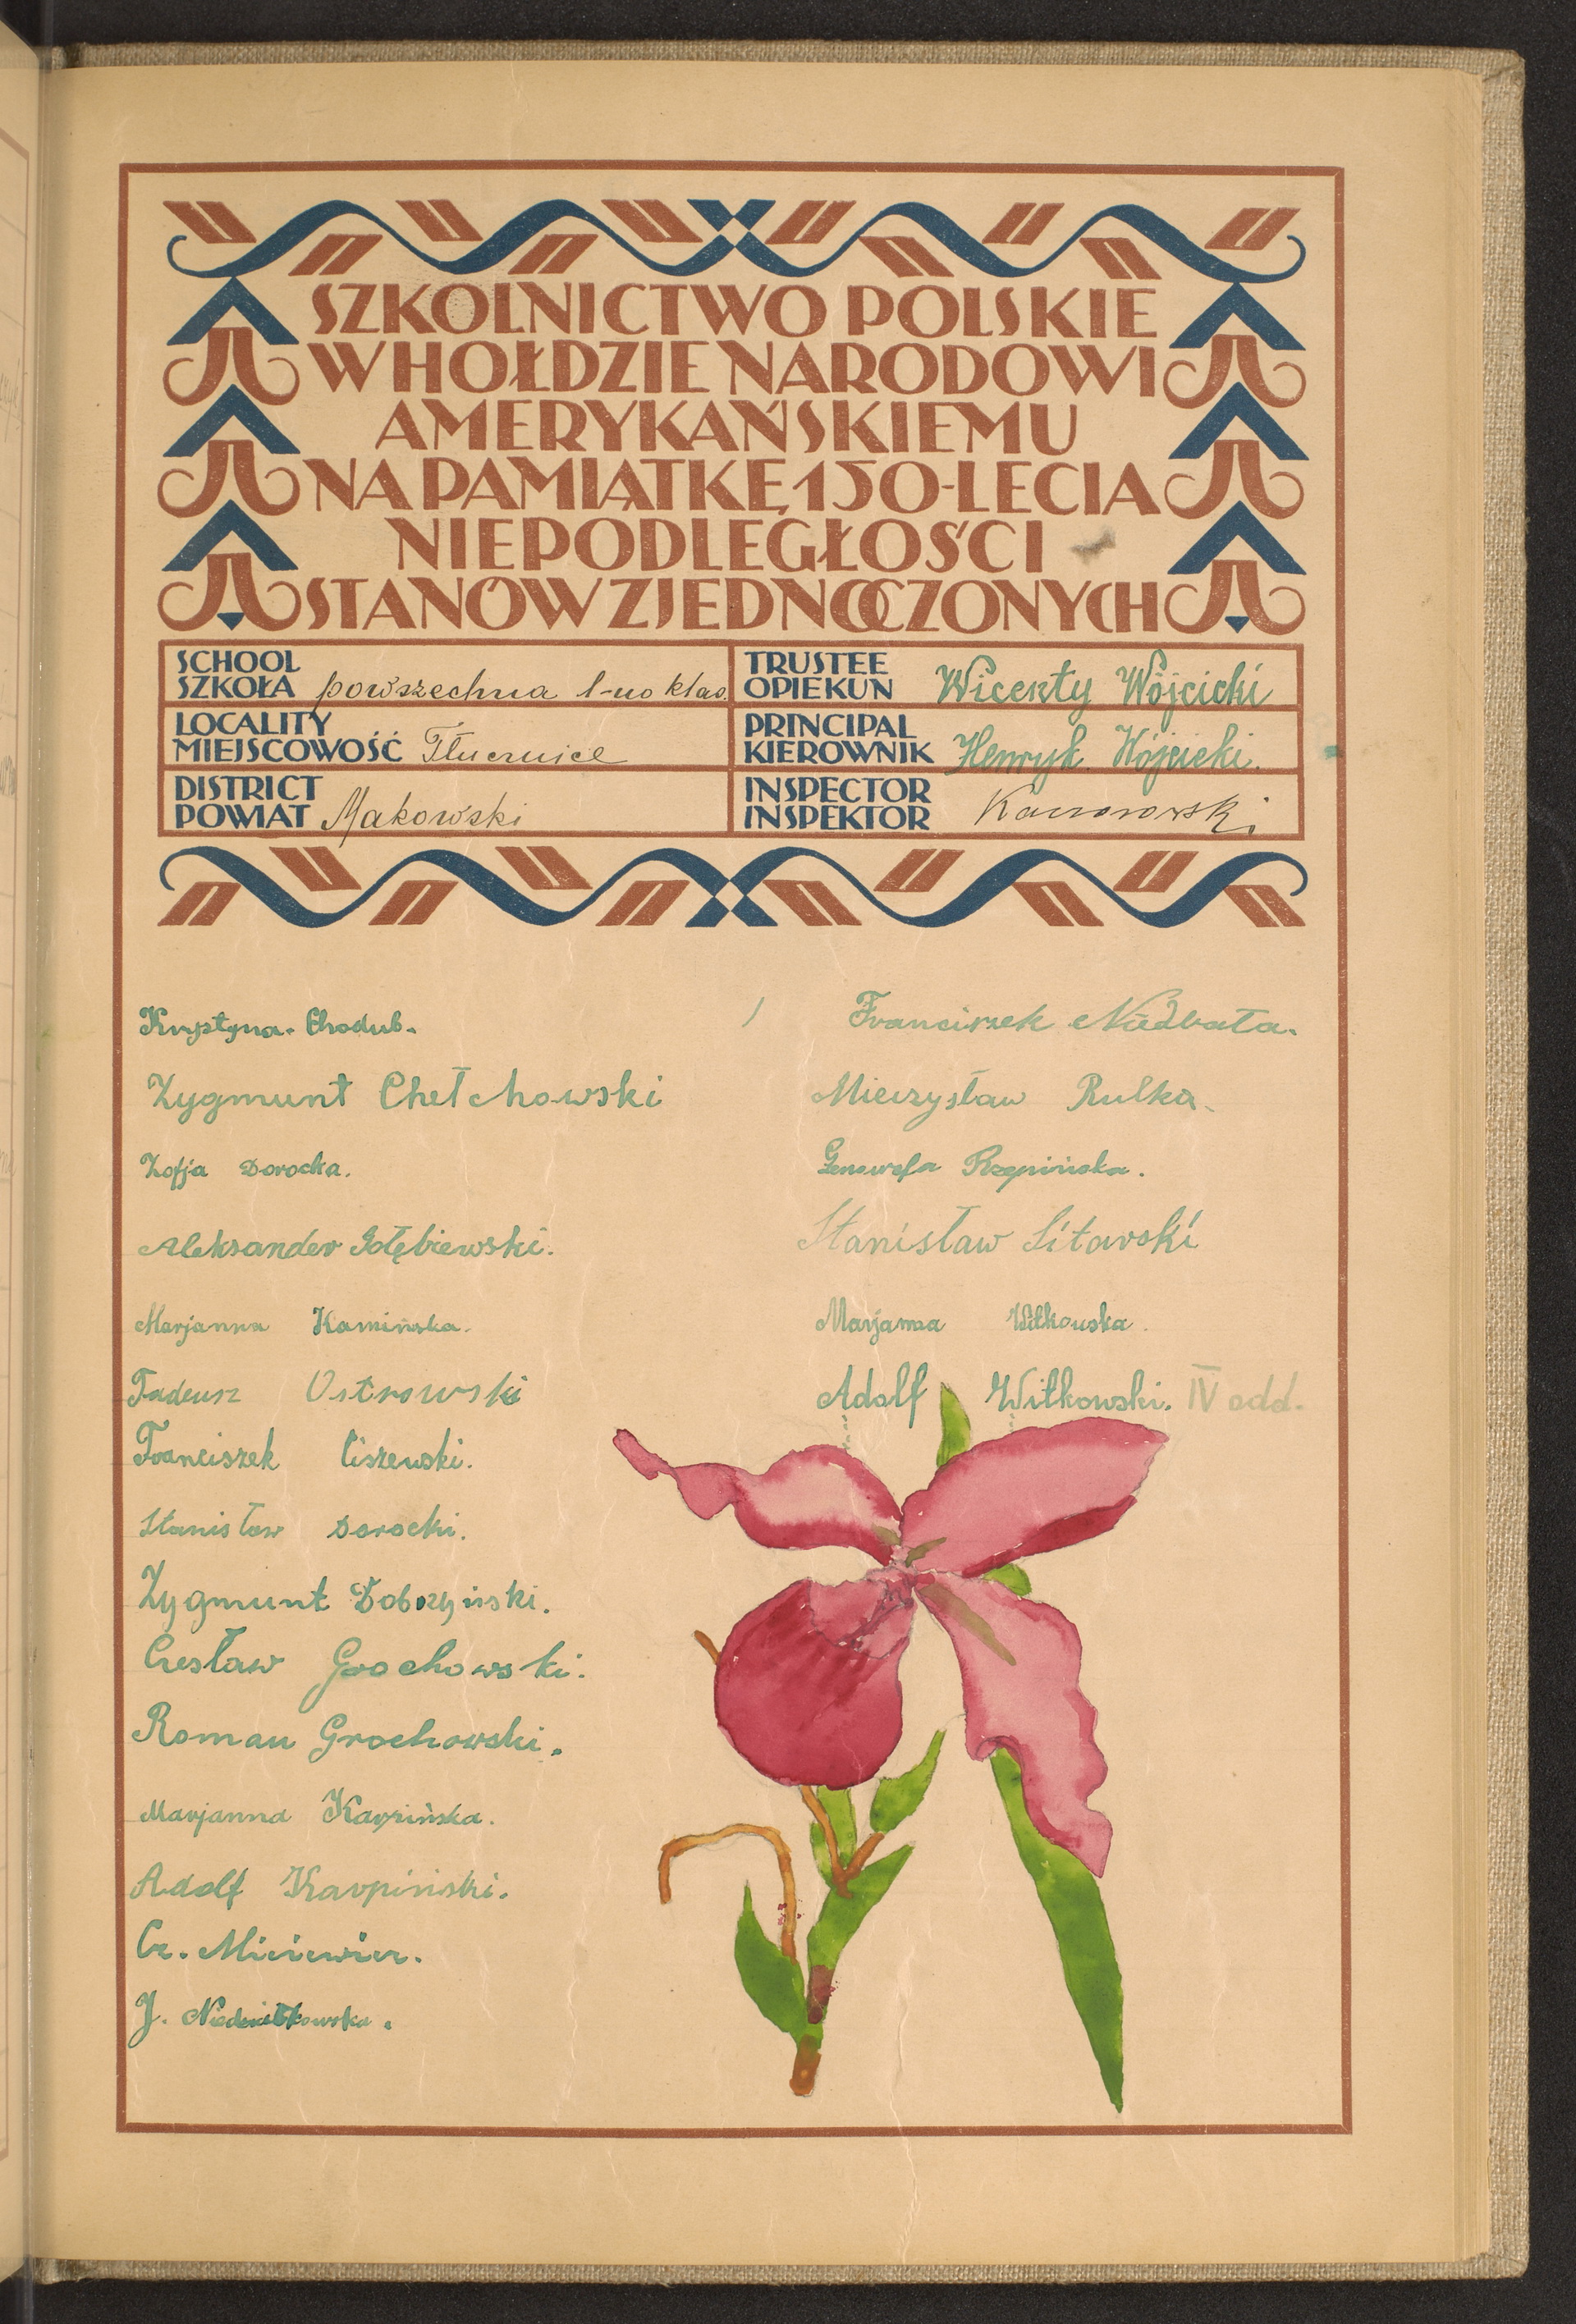 SZKOLNICTWO POLSKIE
W HOŁDZIE NARODOWI
AMERYKAŃSKIEMU
NA PAMIĄTKĘ 150-LECIA
NIEPODLEGŁOŚCI
STANÓW ZJEDNOCZONYCH
SCHOOL
SZKOŁA powszechna 1-no klas.
LOCALITY
MIEJSCOWOŚĆ Tłucznice
DISTRICT
POWIAT Makowski
TRUSTEE
OPIEKUN Wicenty Wójcicki
PRINCIPAL
KIEROWNIK Henryk Wójcicki.
INSPECTOR
INSPEKTOR
Krystyna. Chodub.
Zygmunt Chełchowski
Zofja Dorocka.
Aleksander Gołębiewski.
Marjanna Kamińska.
Tadeusz Ostrowski
Franciszek Ciszewski.
Stanisław Dorocki.
Zygmunt Dobrzyński.
Czesław Grochowski.
Roman Grochowski.
Marjanna Karpińska.
Adolf Karpiński.
Cz. Miciewicz.
J.
Franciszek Niedbała.
Mieczysław Rulka.
Genowefa Rzepińska.
Stanisław Sitarski
Marjanna Witkowska.
Adolf Witkowski. IV odd.